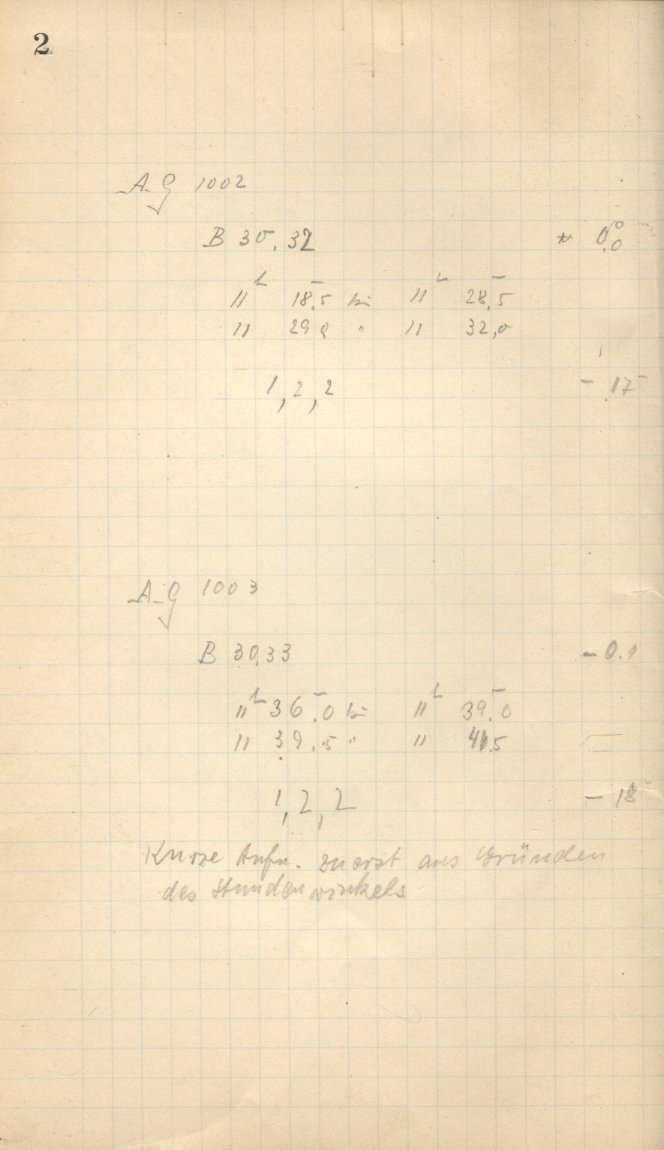 2
A.G 1002
B 30, 32 * 0°,0
11ʰ 18,5 bis 11ʰ 28,5
11 29,0 " 11 32,0
1, 2, 2 - 17
A.G 1003
B 30,33 - 0.1
11ʰ 36,0 bis 11ʰ 39,0
11 39,5 " 11 41,5
1, 2, 2 - 18
Kurze Aufn. zuerst aus Gründen
des Stundenwinkels